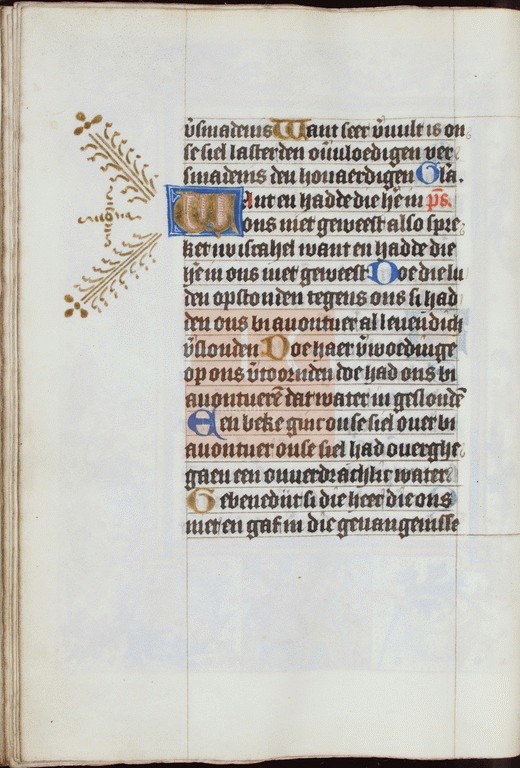 v̄smadenis Want seer v̄vult is on
se siel lasterden ouervloedigen ver
smadenis den houaerdigen Gl̄a.
Want en hadde die h̄e in ps̄.
ons niet geweest also spre
ket nu israhel want en hadde die
h̄e in ons niet geweest Doe die lu
den opstonden tegens ons si had
den ons bi auontuer al leuendich
v̄slonden Doe haer v̄woedinge
op ons v̄toornden doe had ons bi
auontuere dat water in geslondē
Een beke ginc onse siel ouer bi
auontuer onse siel had ouerghe
gaen een onuerdrachlic water
Gebenedijt si die heer die ons
niet en gaf in die geuangenisse